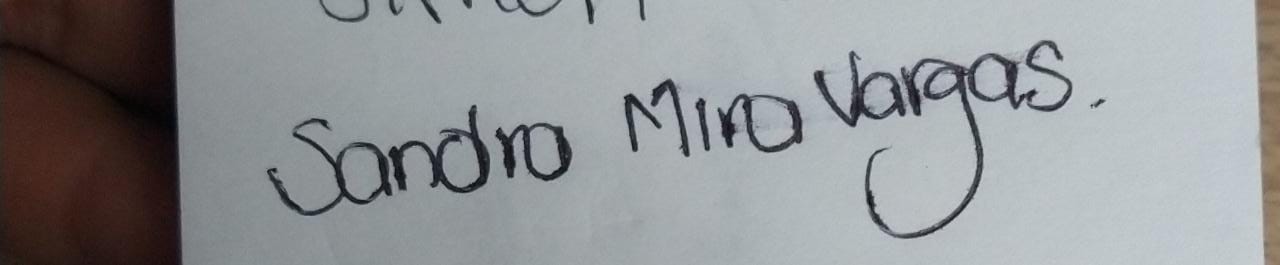 Sandro Miro Vargas.